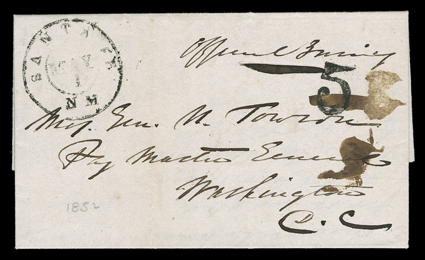 SANTA FE
MAY
1
N M
Official Business
5
Maj. Gen. N. Towson
Pay Master General
Washington
D.C
1852